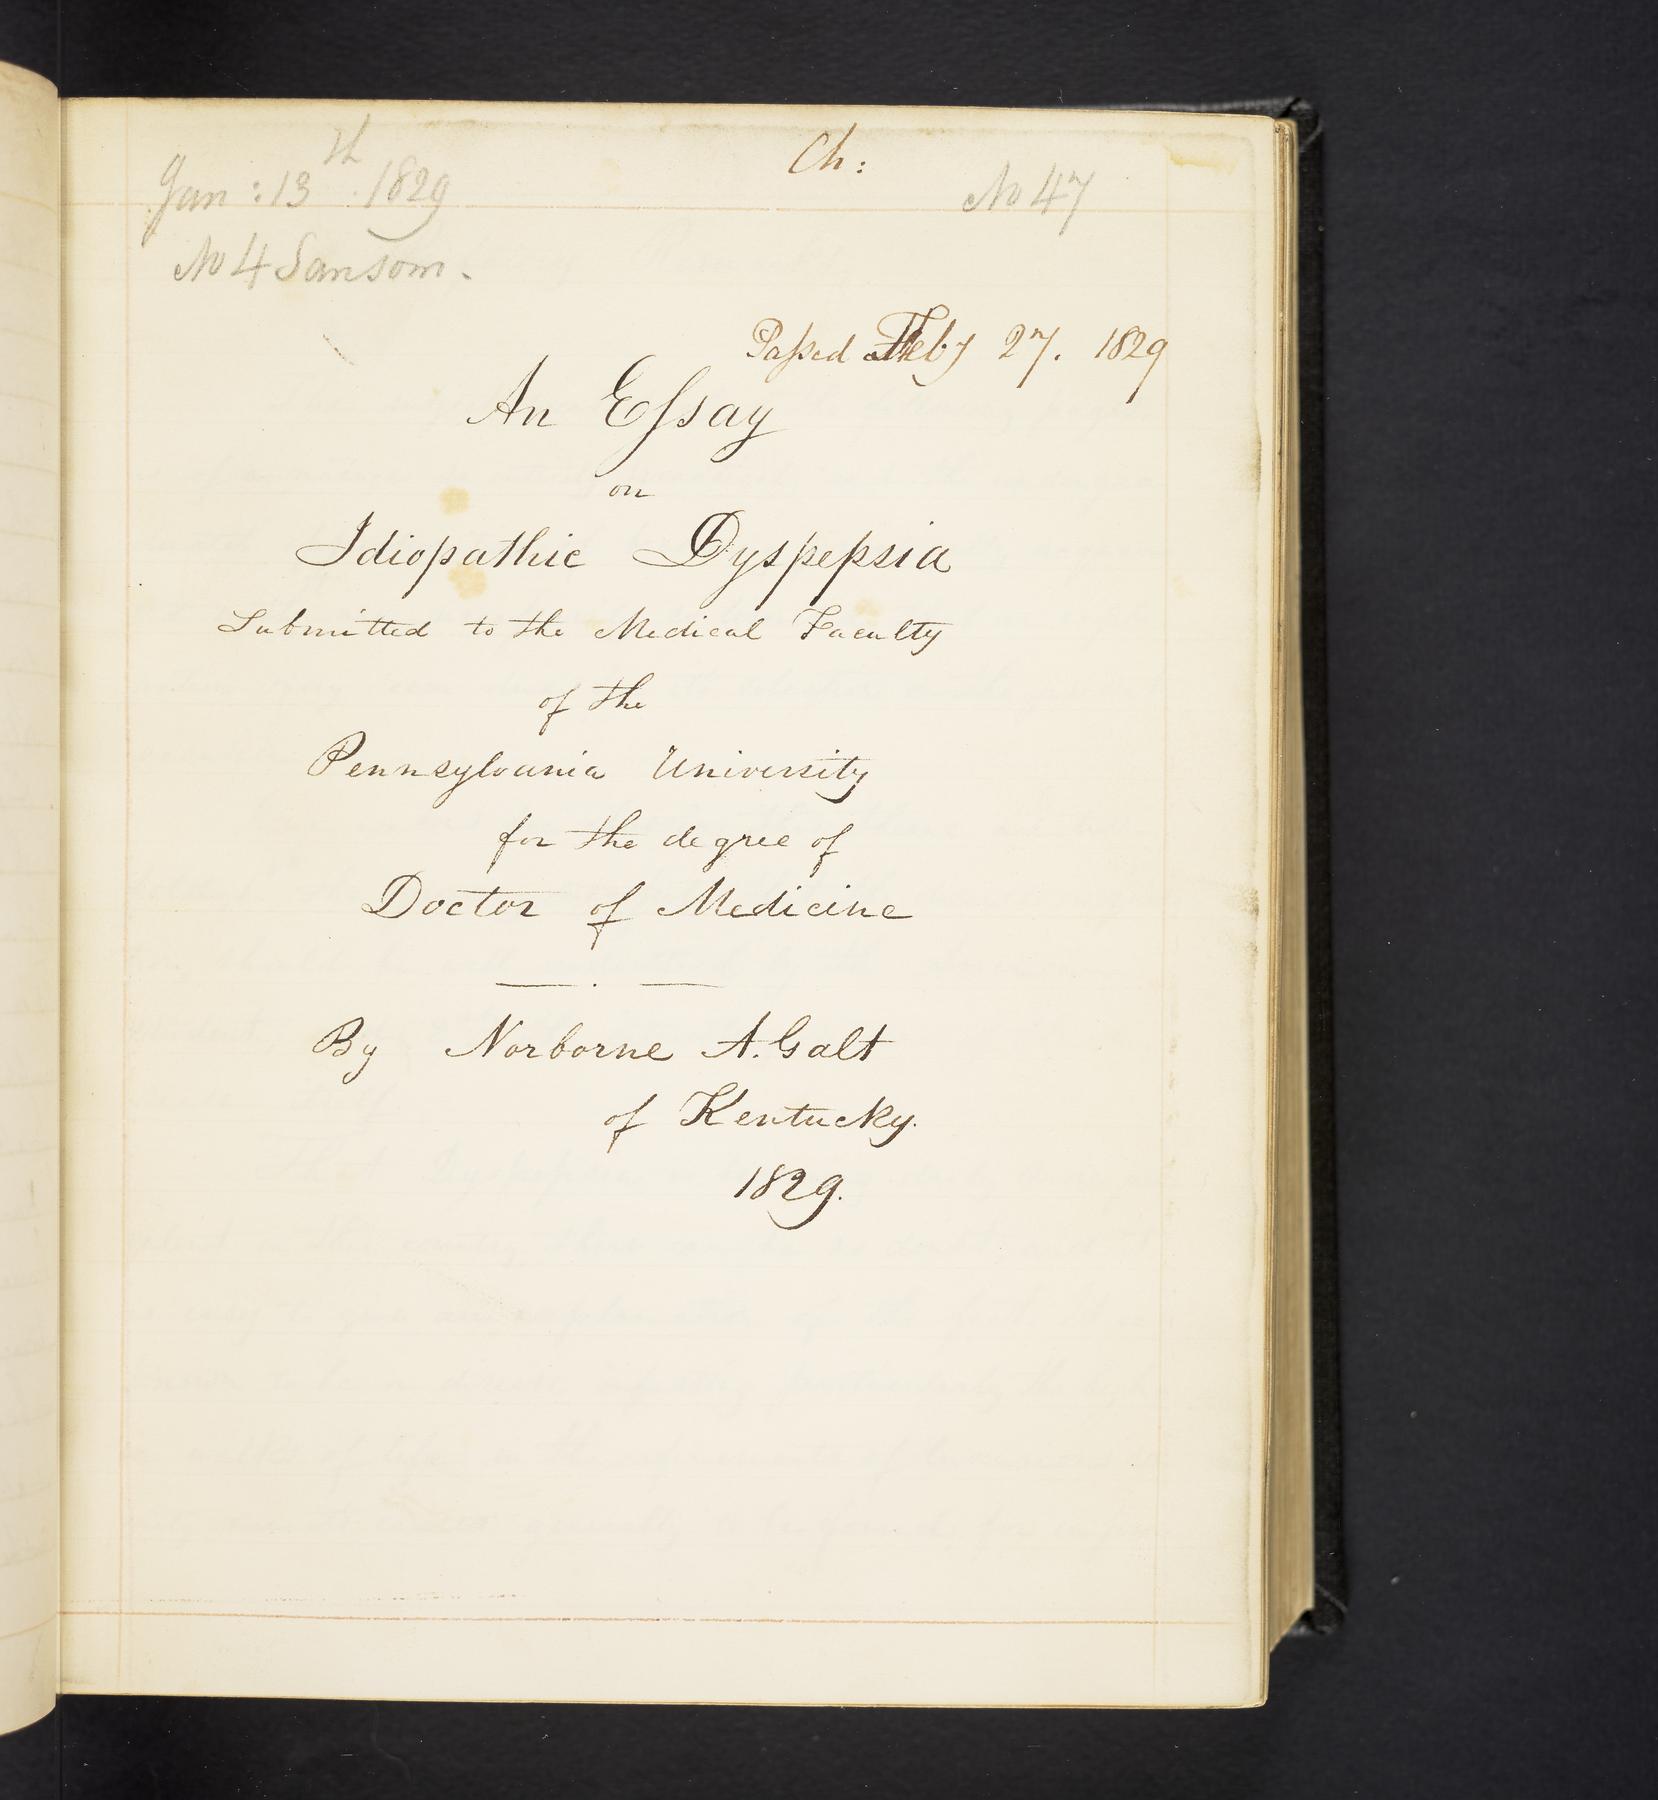 Jan: 13th. 1829
Ch:
No 47
No 4 Sansom.
Paſsed Feby 27. 1829
An Eſsay
on
Idiopathic Dyspepsia
Submitted to the Medical Faculty
of the
Pennsylvania University
for the degree of
Doctor of Medicine
By Norborne A. Galt
of Kentucky.
1829.